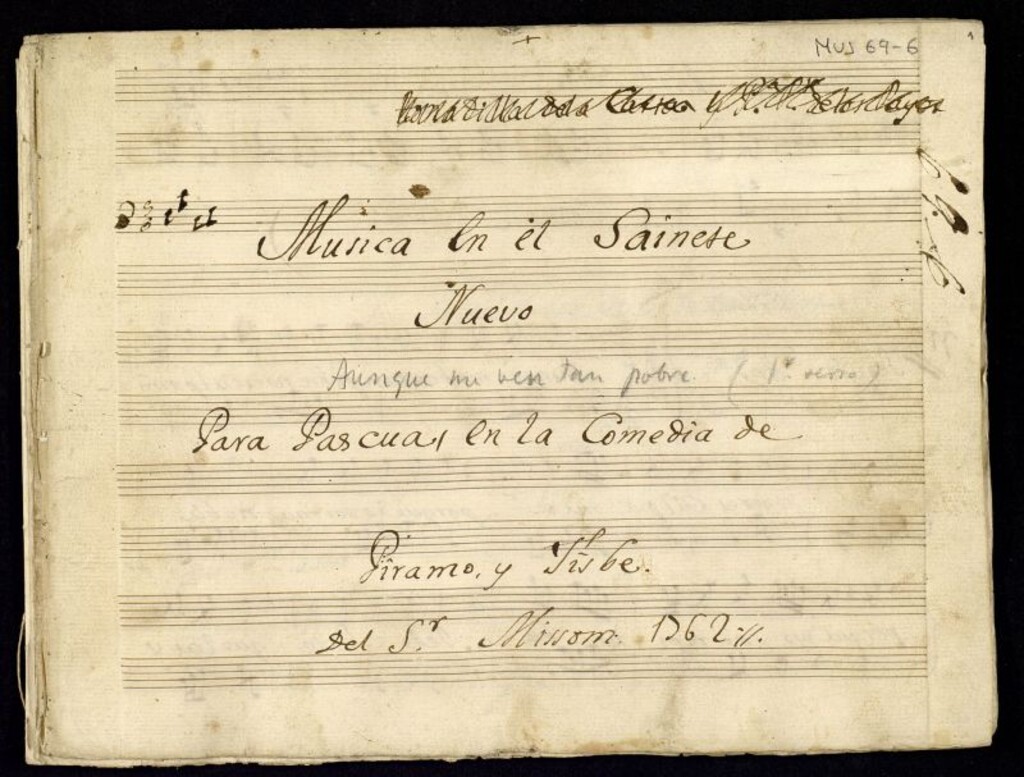 MUS 69-6
Musica En el Sainete
Nuevo
Aunque me ven tan pobre (1er verso)
Para Pascuas en la Comedia de
Piramo, y Tisbe.
Del Sr. Misson. 1762